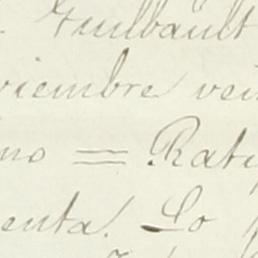 Guilbault
viembre vei
no = Rati
enta. Lo